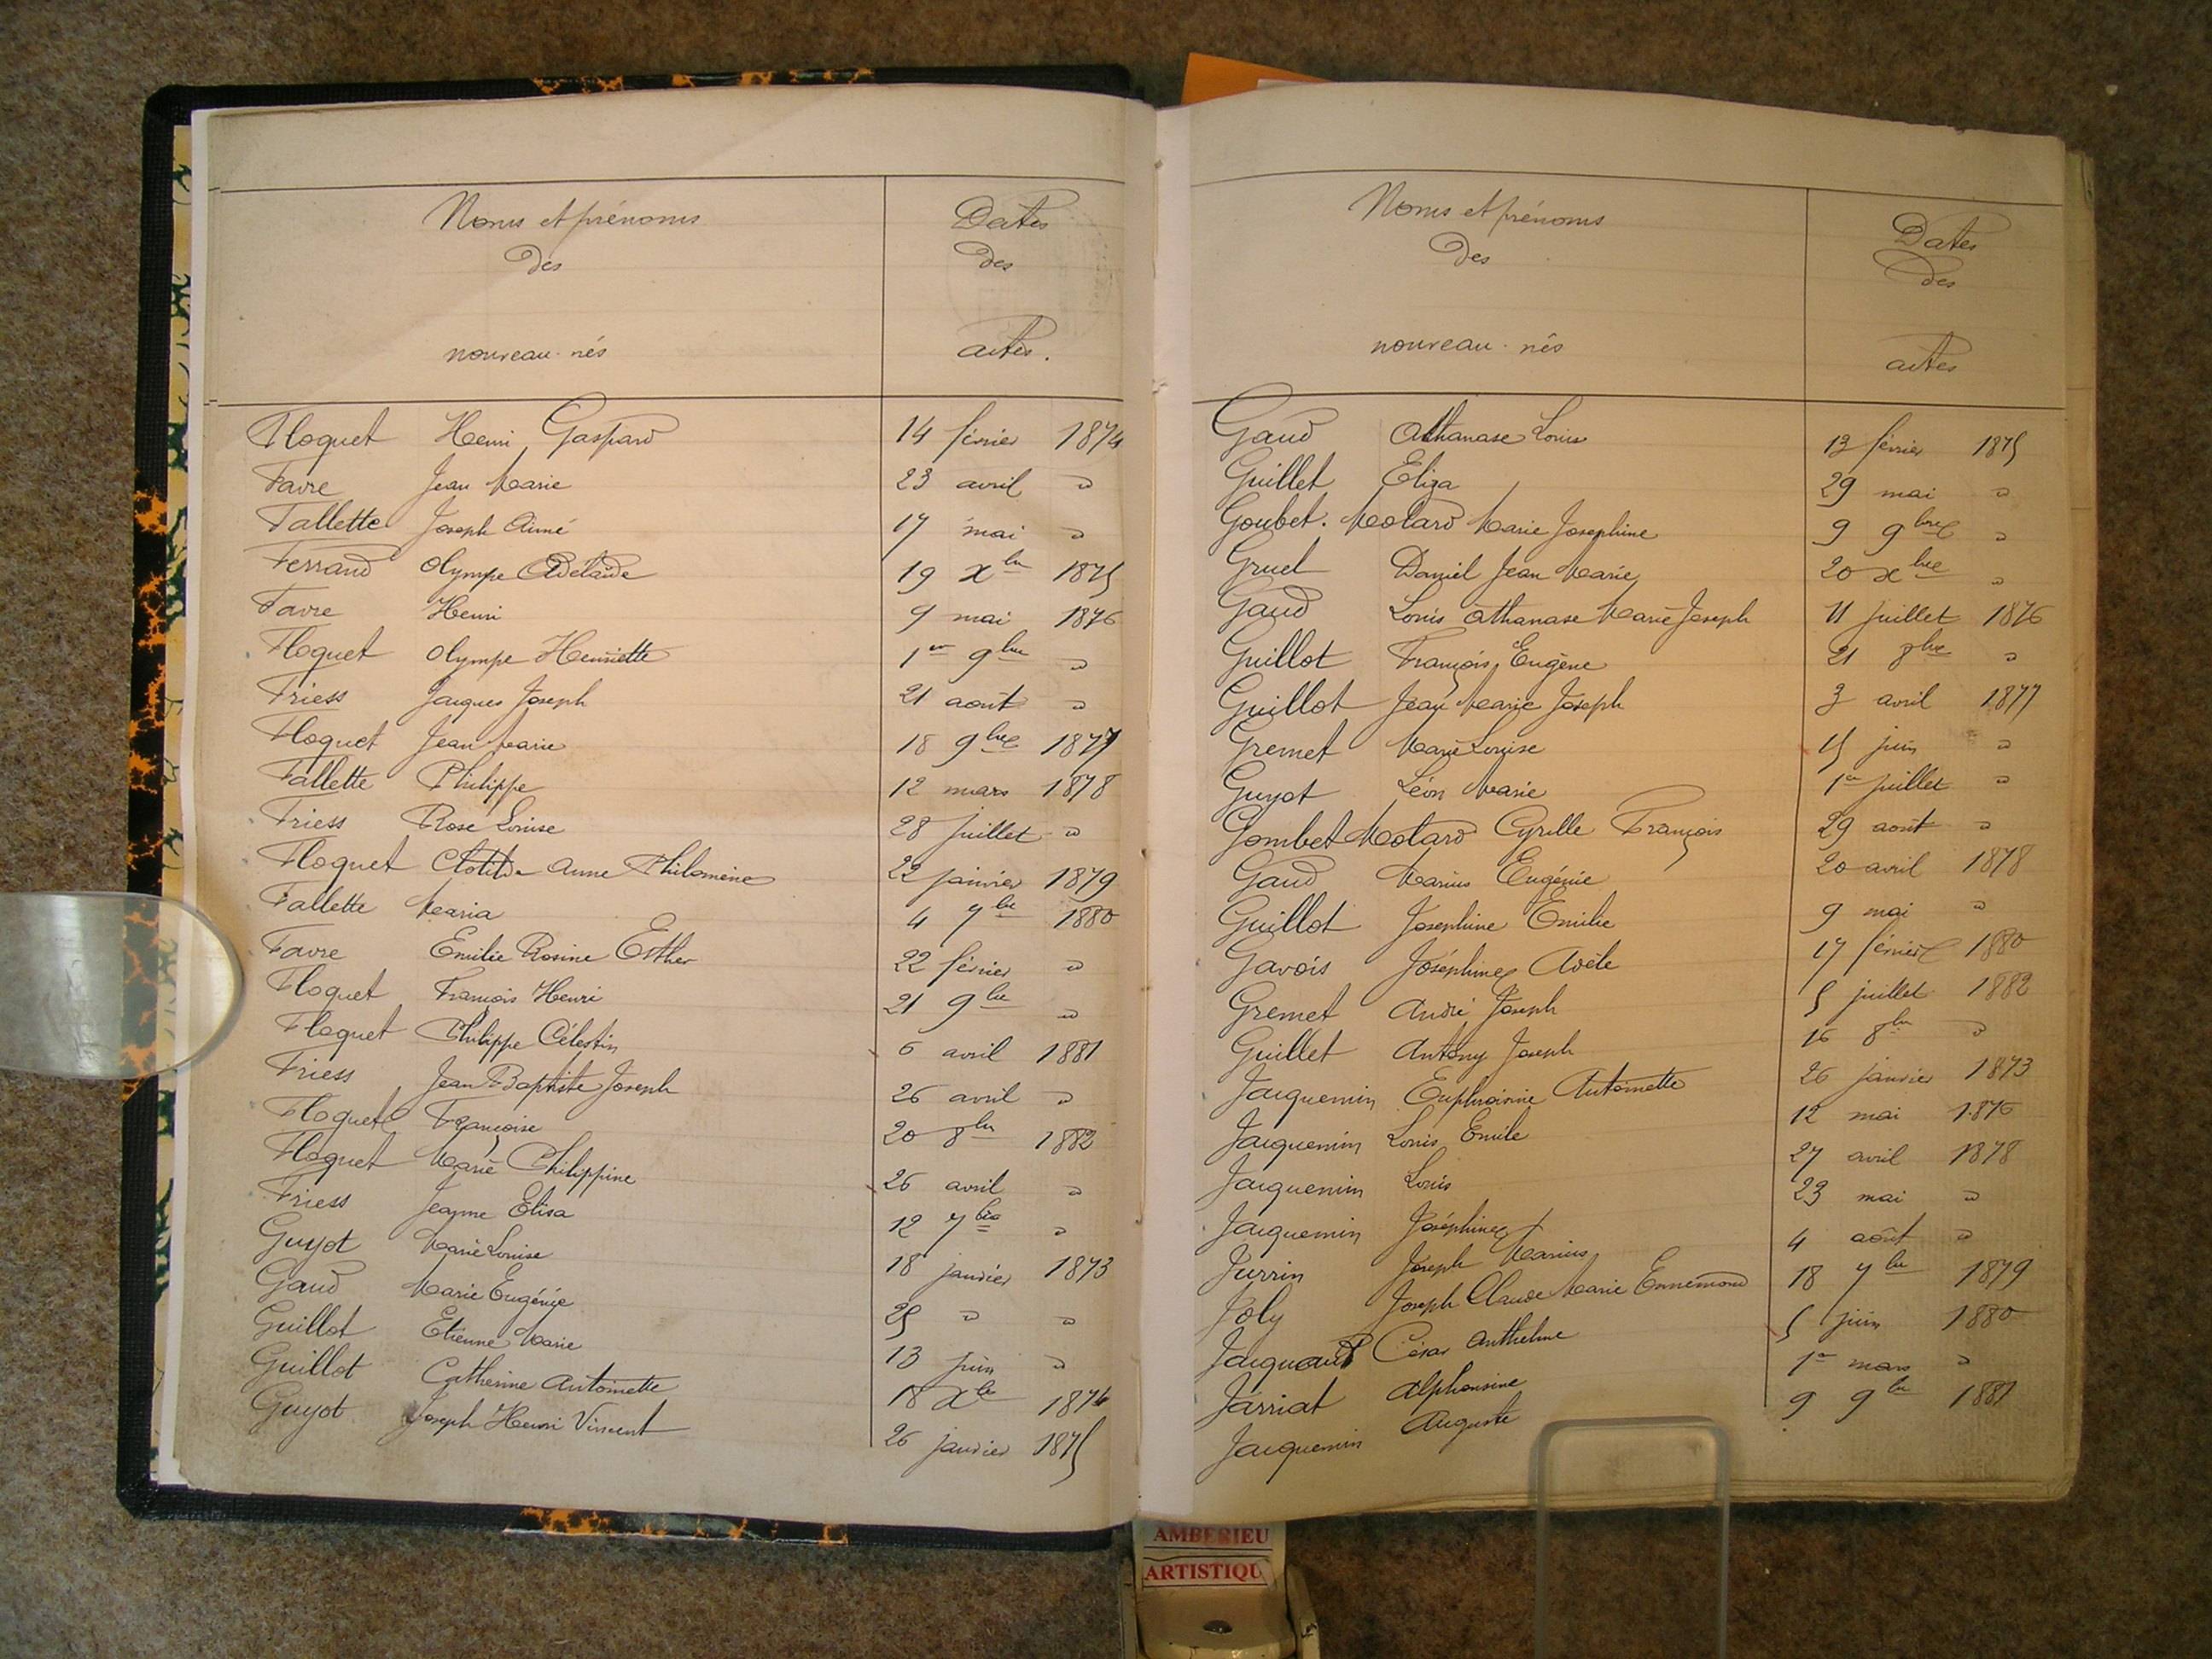 Noms et prénoms
des
nouveau-nés
Dates
des
actes.
Floquet Henri Gaspard 14 février 1874
Favre Jean Marie 23 avril "
Fallette Joseph Aimé 17 mai "
Ferrand Olympe Adélaïde 19 Xbre 1875
Favre Henri 9 mai 1876
Floquet Olympe Henriette 1er 9bre "
Friess Jacques Joseph 21 août "
Floquet Jean Marie 18 9bre 1877
Fallette Philippe 12 mars 1878
Friess Rose Louise 28 juillet "
Floquet Clotilde Anne Philomène 22 janvier 1879
Fallette Maria 4 7bre 1880
Favre Emilie Rosine Esther 22 février "
Floquet François Henri 21 9bre "
Floquet Philippe Célestin 6 avril 1881
Friess Jean Baptiste Joseph 26 avril "
Floquet Françoise 20 8bre 1882
Floquet Marie Philippine 26 avril "
Friess Jeanne Elisa 12 7bre "
Guyot Marie Louise 18 janvier 1873
Gaud Marie Eugénie 25 " "
Guillot Etienne Marie 13 juin "
Guillot Catherine Antoinette 18 Xbre 1874
Guyot Joseph Henri Vincent 26 janvier 1875
Noms et prénoms
des
nouveau-nés
Dates
des
actes
Gaud Athanase Louis 13 février 1875
Guillet Eliza 29 mai "
Goubet-Molard Marie Josephine 9 9bre "
Gruel Daniel Jean Marie 20 Xbre "
Gaud Louis Athanase Marie Joseph 11 juillet 1876
Guillot François Eugène 21 8bre "
Guillot Jean Marie Joseph 3 avril 1877
Gremet Marie Louise 15 juin "
Guyot Léon Marie 1er juillet "
Gombet Molard Cyrille François 29 août "
Gaud Marius Eugénie 20 avril 1878
Guillot Joséphine Emilie 9 mai "
Gavois Joséphine Adèle 17 février 1880
Gremet André Joseph 5 juillet 1882
Guillet Antony Joseph 16 8bre "
Jacquemin Euphroisine Antoinette 26 janvier 1873
Jacquemin Louis Emile 12 mai 1876
Jacquemin Louis 27 avril 1878
Jacquemin Joséphine 23 mai "
Jurrin Joseph Marius 4 août "
Joly Joseph Claude Marie Ennemond 18 7bre 1879
Jacquand César Anthelme 5 juin 1880
Jarriat Alphonsine 1er mars "
Jacquemin Auguste 9 9bre 1881
AMBERIEU
ARTISTIQU